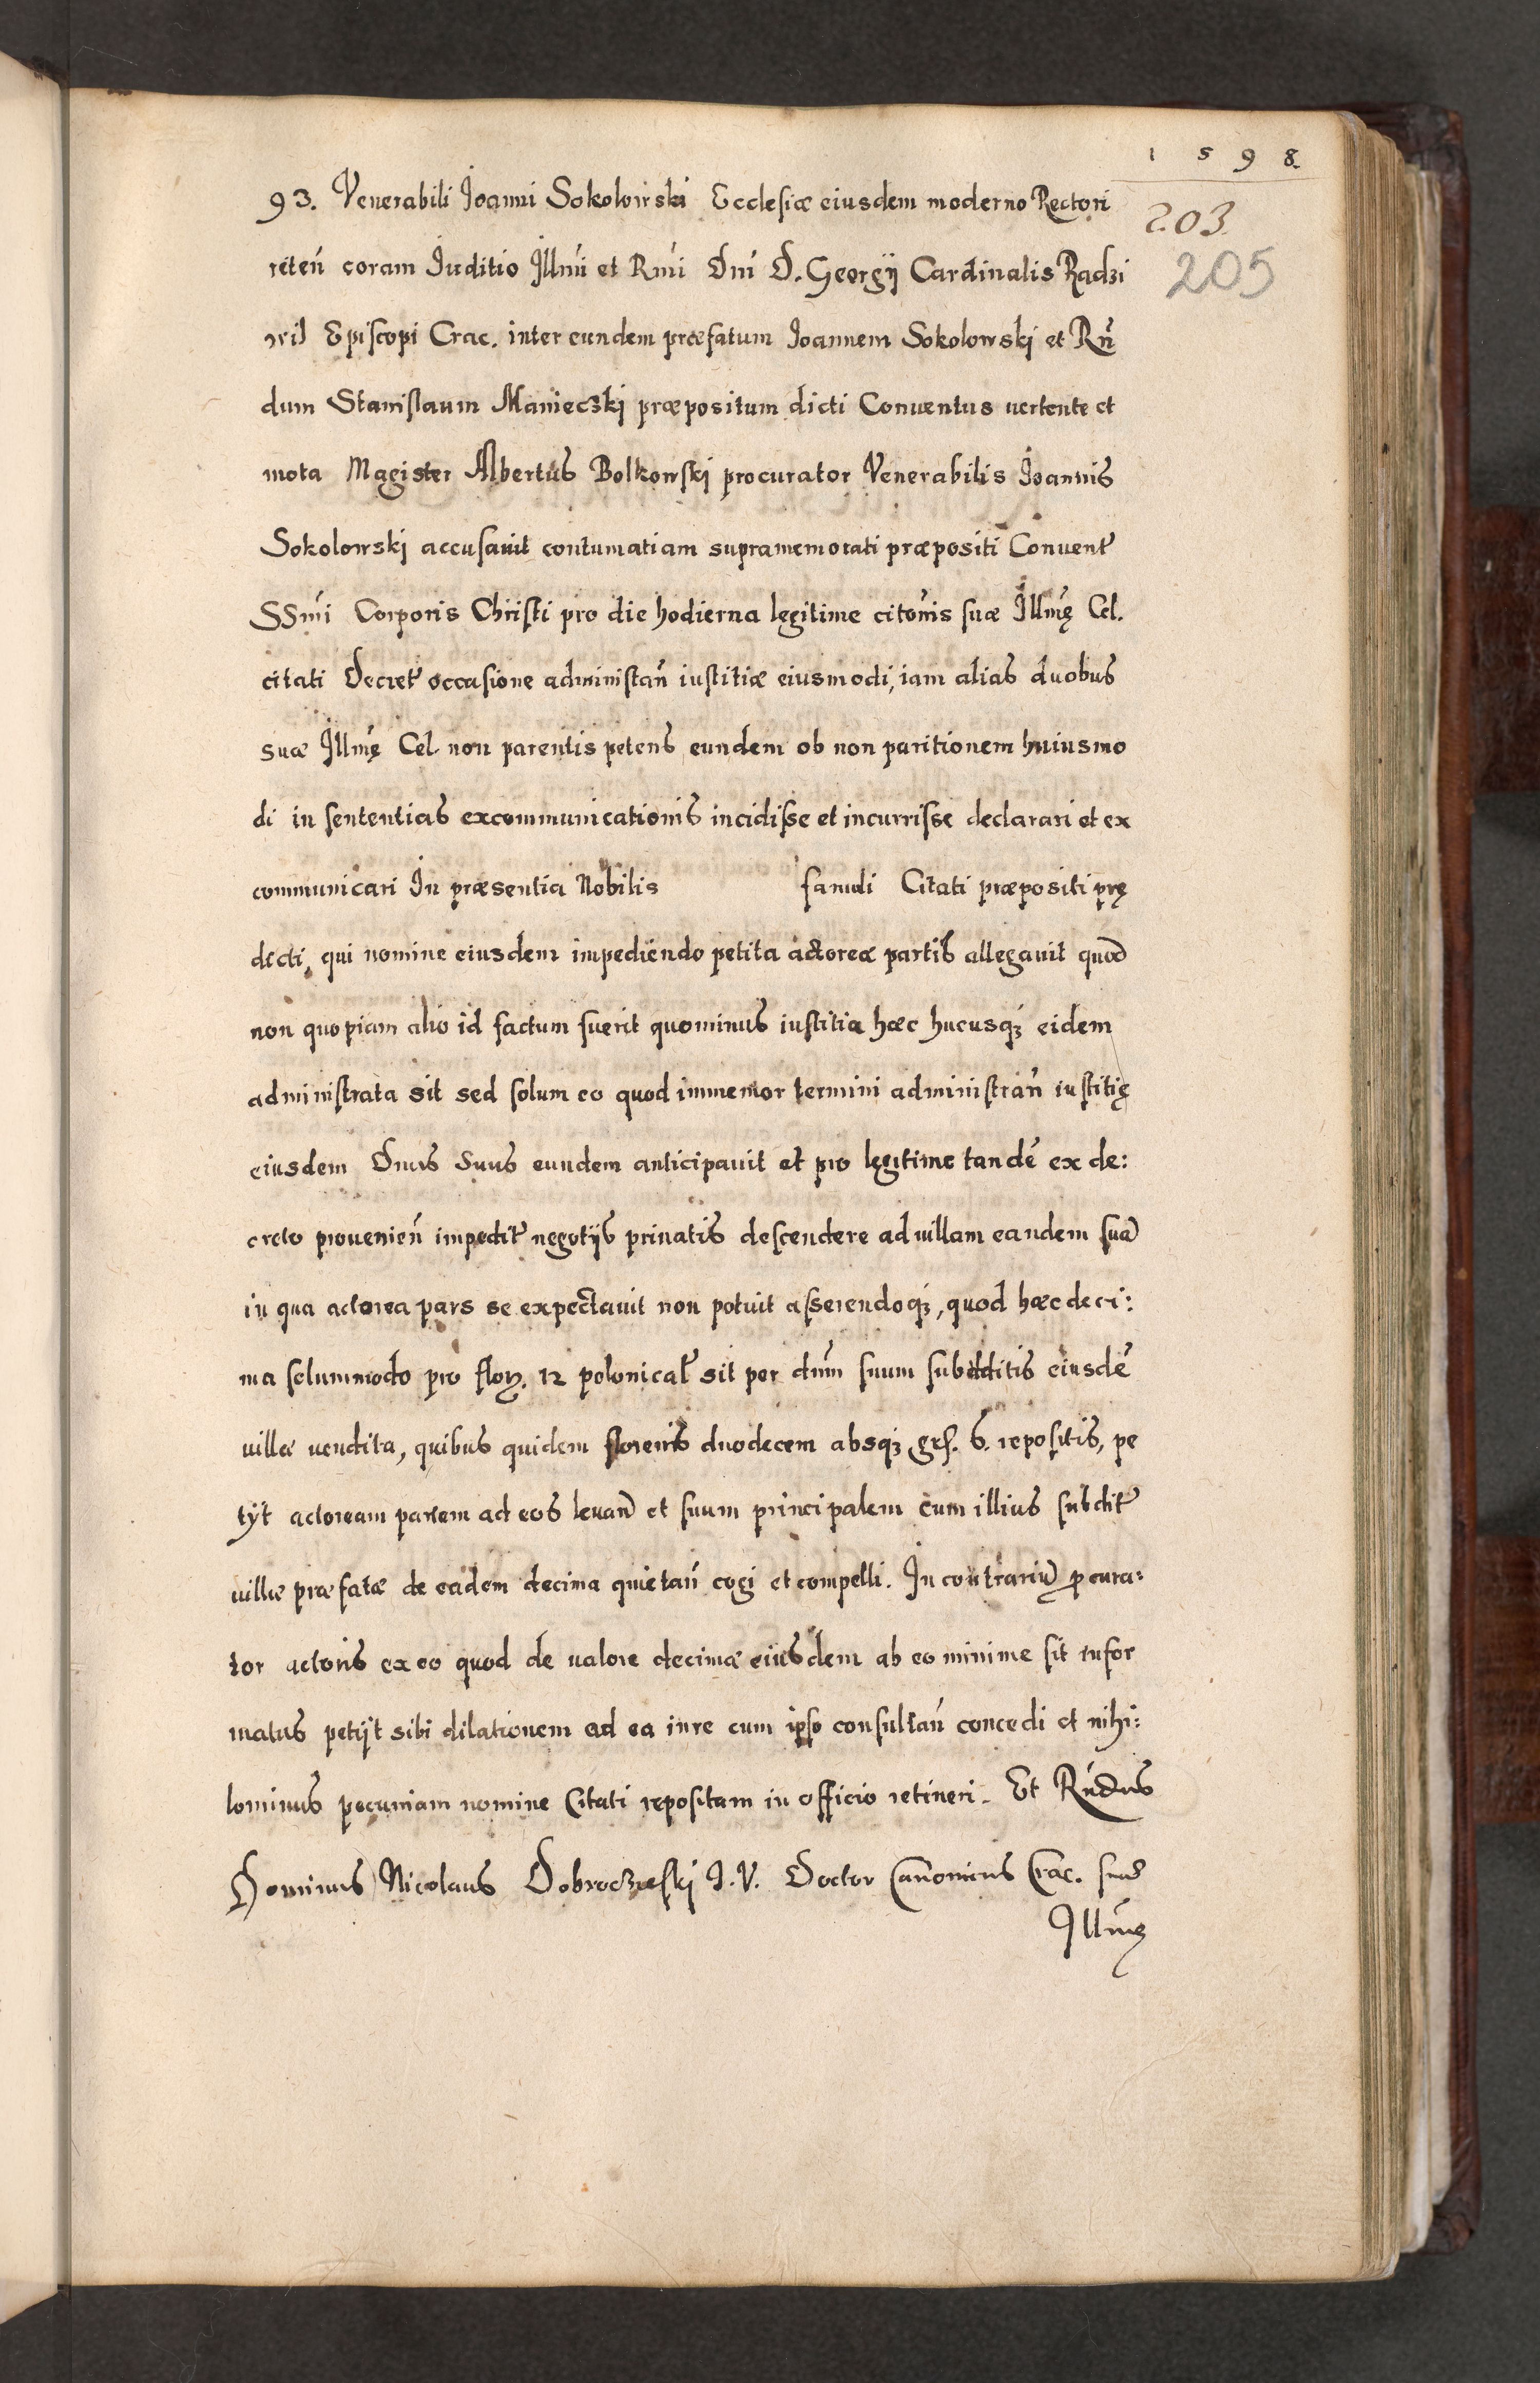 1598.
203.
205
93. Venerabili Joanni Sokolowski Ecclesiæ eiusdem moderno Rectori
reteñ coram Juditio Jllmi et Rmi Dni D. Georgij Cardinalis Radzi
vil Episcopi Crac. inter eundem præfatum Joannem Sokolowskj et Rñ
dum Stanislaum Manieczkj præpositum dicti Conuentus uertente et
mota Magister Albertus Bolkowskj procurator Venerabilis Joannis
Sokolowskj accusauit contumatiam supramemorati præpositi Conuent
SSmi Corporis Christi pro die hodierna legitime citonis suæ Jllmę Cel.
citati Decret occasione administrañ iustitiæ eiusmodi, iam alias duobus
suæ Jllmę Cel. non parentis petens eundem ob non paritionem huiusmo
di in sententias excommunicationis incidisse et incurrisse declarari et ex
communicari Jn præsentia Nobilis famuli Citati præpositi prę
dicti, qui nomine eiusdem impediendo petita actoreæ partis allegauit quod
non quopiam alio id factum fuerit quominus iustitia hæc hucusq; eidem
administrata sit sed solum eo quod immemor termini administrañ iustitię
eiusdem Dnus Suus eundem anticipauit et pro legitime tandē ex de:
creto prouenieñ impedit negotijs priuatis descendere ad uillam eandem suā
in qua actorea pars se expectauit non potuit asserendoq;, quod hæc deci:
ma solummodo pro flor. 12 polonical sit per dnm suum subdditis eiusdē
uillæ uendita, quibus quidem florenis duodecem absq; grs. 6. repositis, pe
tyt actoream partem ad eos leuañ et suum principalem cum illius subdit
uillæ præfatæ de eadem decima quietañ cogi et compelli. Jn contrariū pcura:
tor actoris ex eo quod de ualore decimæ eiusdem ab eo minime sit infor
matus petijt sibi dilationem ad ea inre cum ipso consultañ concedi et nihi:
lominus pecuniam nomine Citati repositam in officio retineri. Et Rñdus
Dominus Nicolaus Dobroczieskj J. V. Doctor Canonicus Crac. suæ
Jllmę